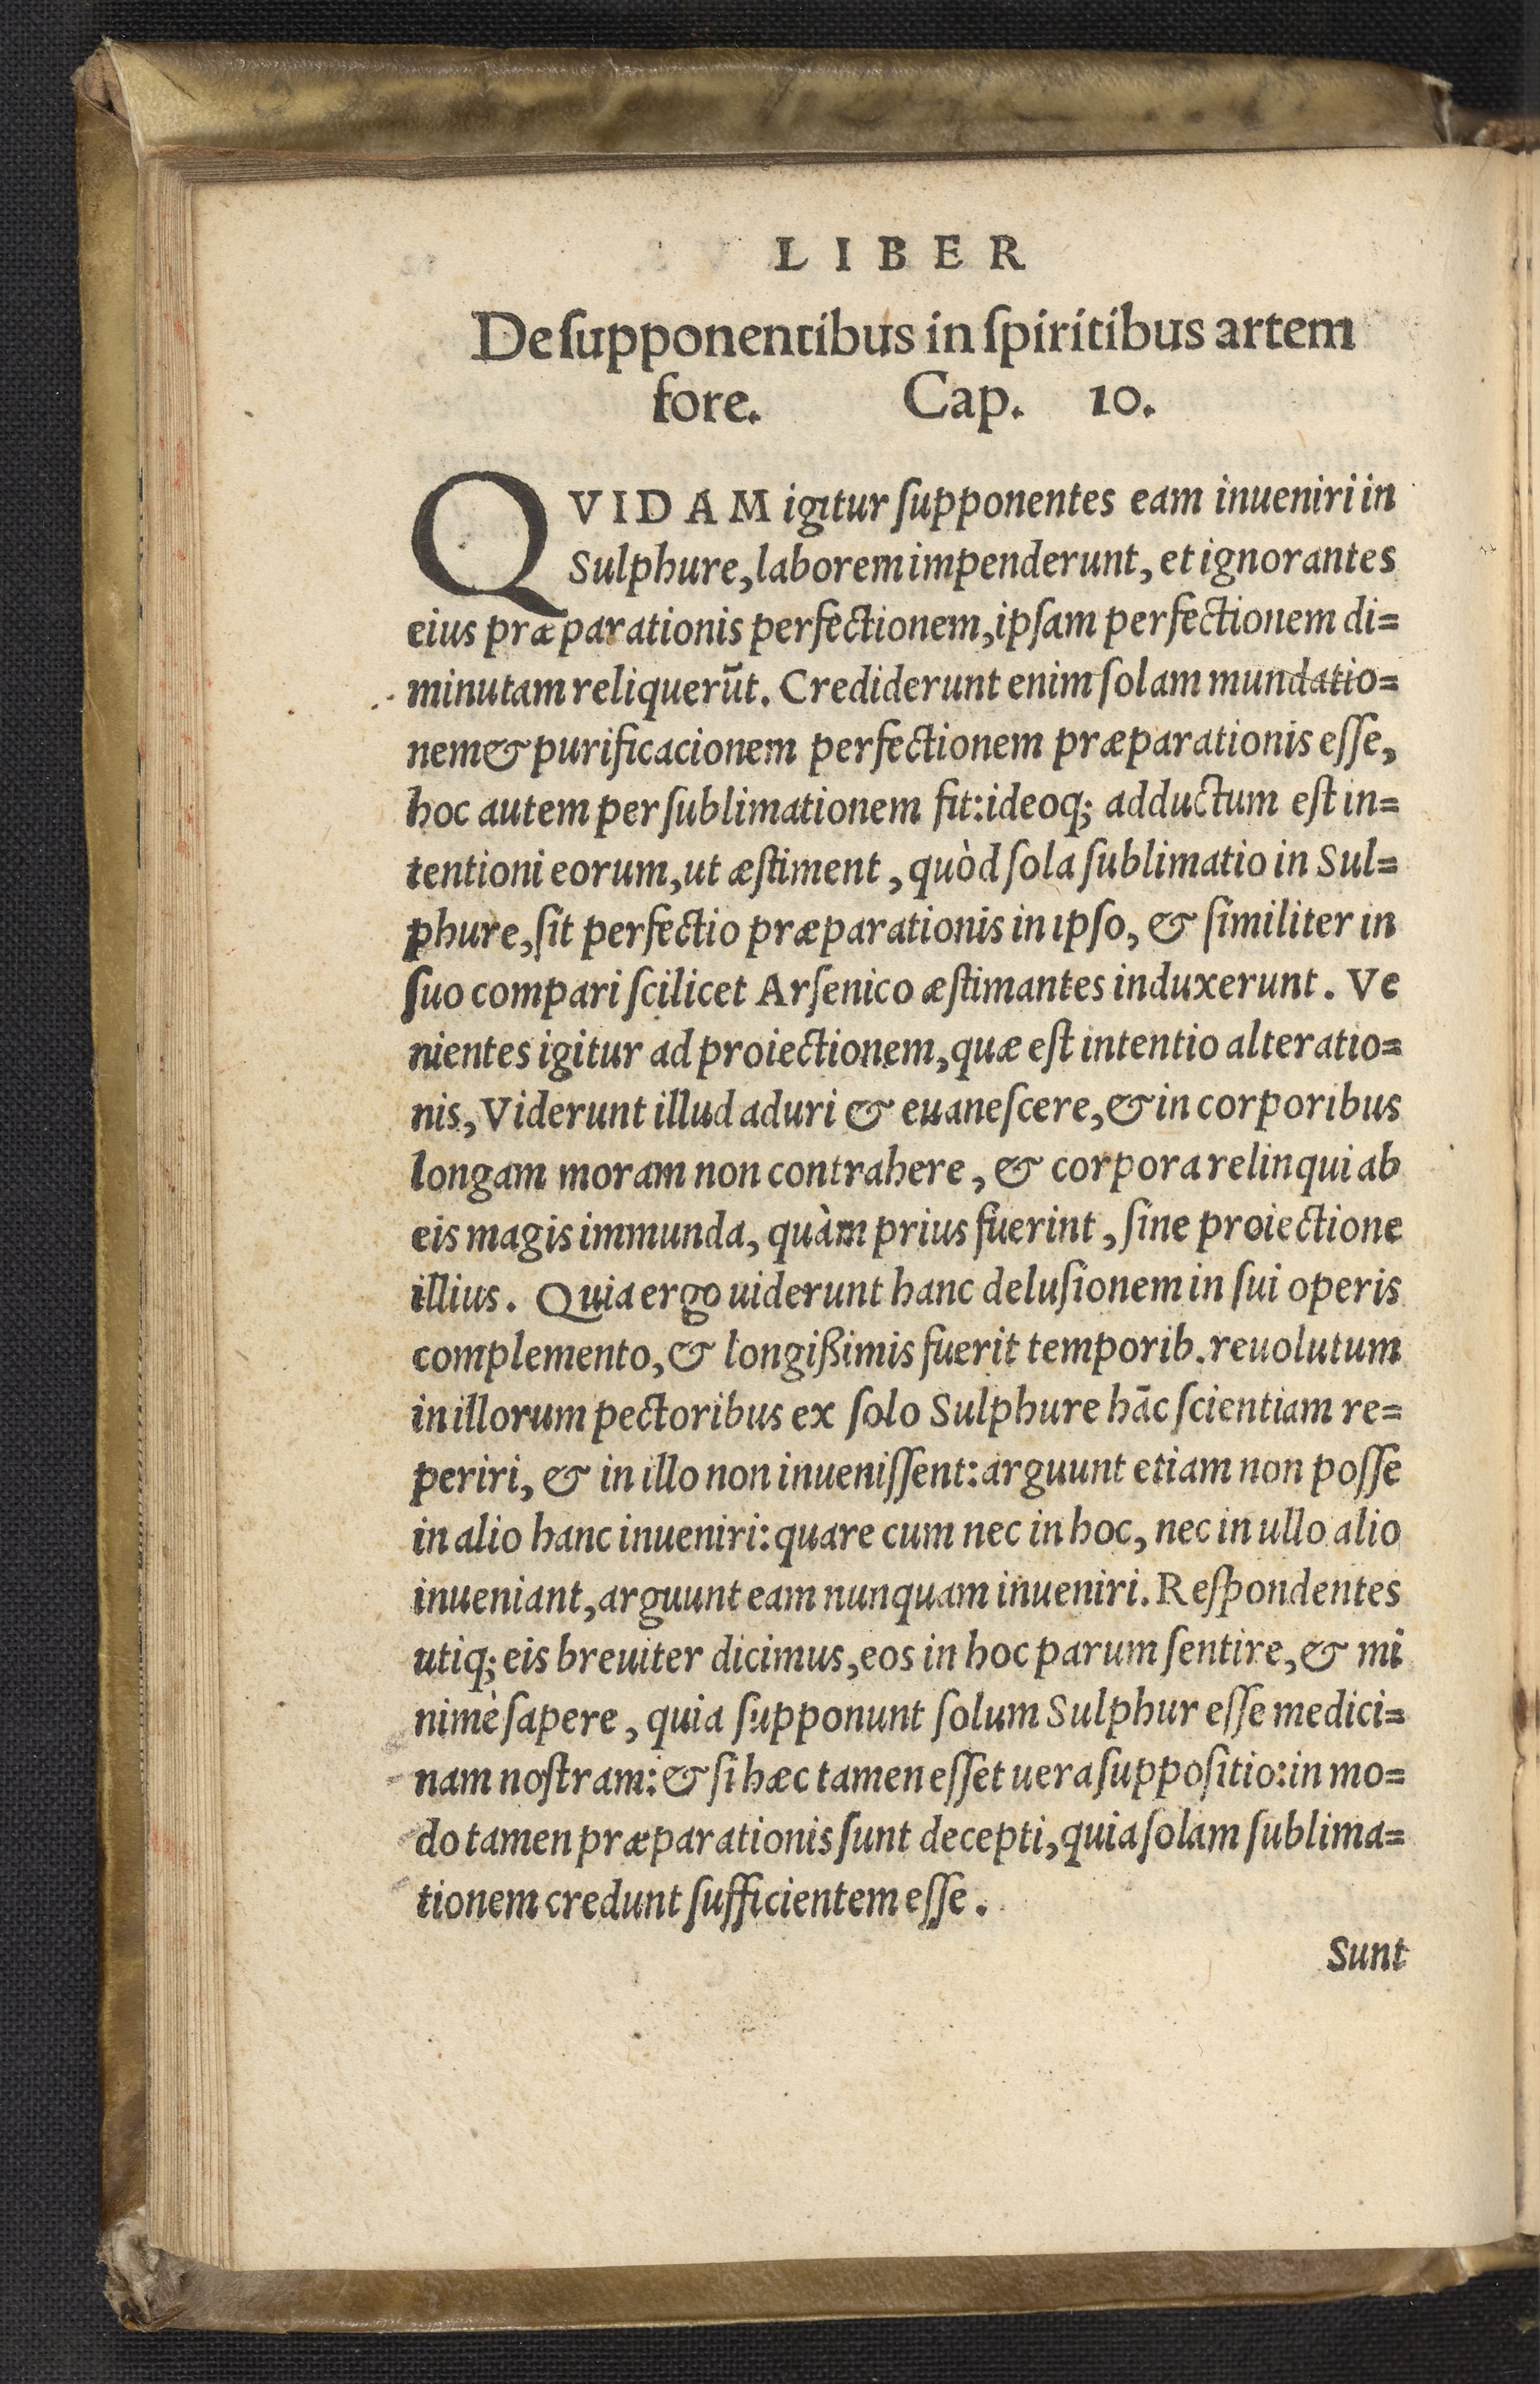 LIBER
De ſupponentibus in ſpiritibus artem
fore. Cap. 10.
QVIDAM igitur ſupponentes eam inueniri in
Sulphure, laborem impenderunt, et ignorantes
eius præparationis perfectionem, ipſam perfectionem di=
minutam reliquerūt. Crediderunt enim ſolam mundatio=
nem & purificacionem perfectionem præparationis eſſe,
hoc autem per ſublimationem fit: ideoq; adductum eſt in=
tentioni eorum, ut æſtiment, quòd ſola ſublimatio in Sul=
phure, ſit perfectio præparationis in ipſo, & ſimiliter in
ſuo compari ſcilicet Arſenico æſtimantes induxerunt. Ve
nientes igitur ad proiectionem, quæ eſt intentio alteratio=
nis, Viderunt illud aduri & euaneſcere, & in corporibus
longam moram non contrahere, & corpora relinqui ab
eis magis immunda, quàm prius fuerint, ſine proiectione
illius. Quia ergo uiderunt hanc deluſionem in ſui operis
complemento, & longißimis fuerit temporib. reuolutum
in illorum pectoribus ex ſolo Sulphure hāc ſcientiam re=
periri, & in illo non inueniſſent: arguunt etiam non poſſe
in alio hanc inueniri: quare cum nec in hoc, nec in ullo alio
inueniant, arguunt eam nunquam inueniri. Reſpondentes
utiq; eis breuiter dicimus, eos in hoc parum ſentire, & mi
nimè ſapere, quia ſupponunt ſolum Sulphur eſſe medici=
nam noſtram: & ſi hæc tamen eſſet uera ſuppoſitio: in mo=
do tamen præparationis ſunt decepti, quia ſolam ſublima=
tionem credunt ſufficientem eſſe.
Sunt